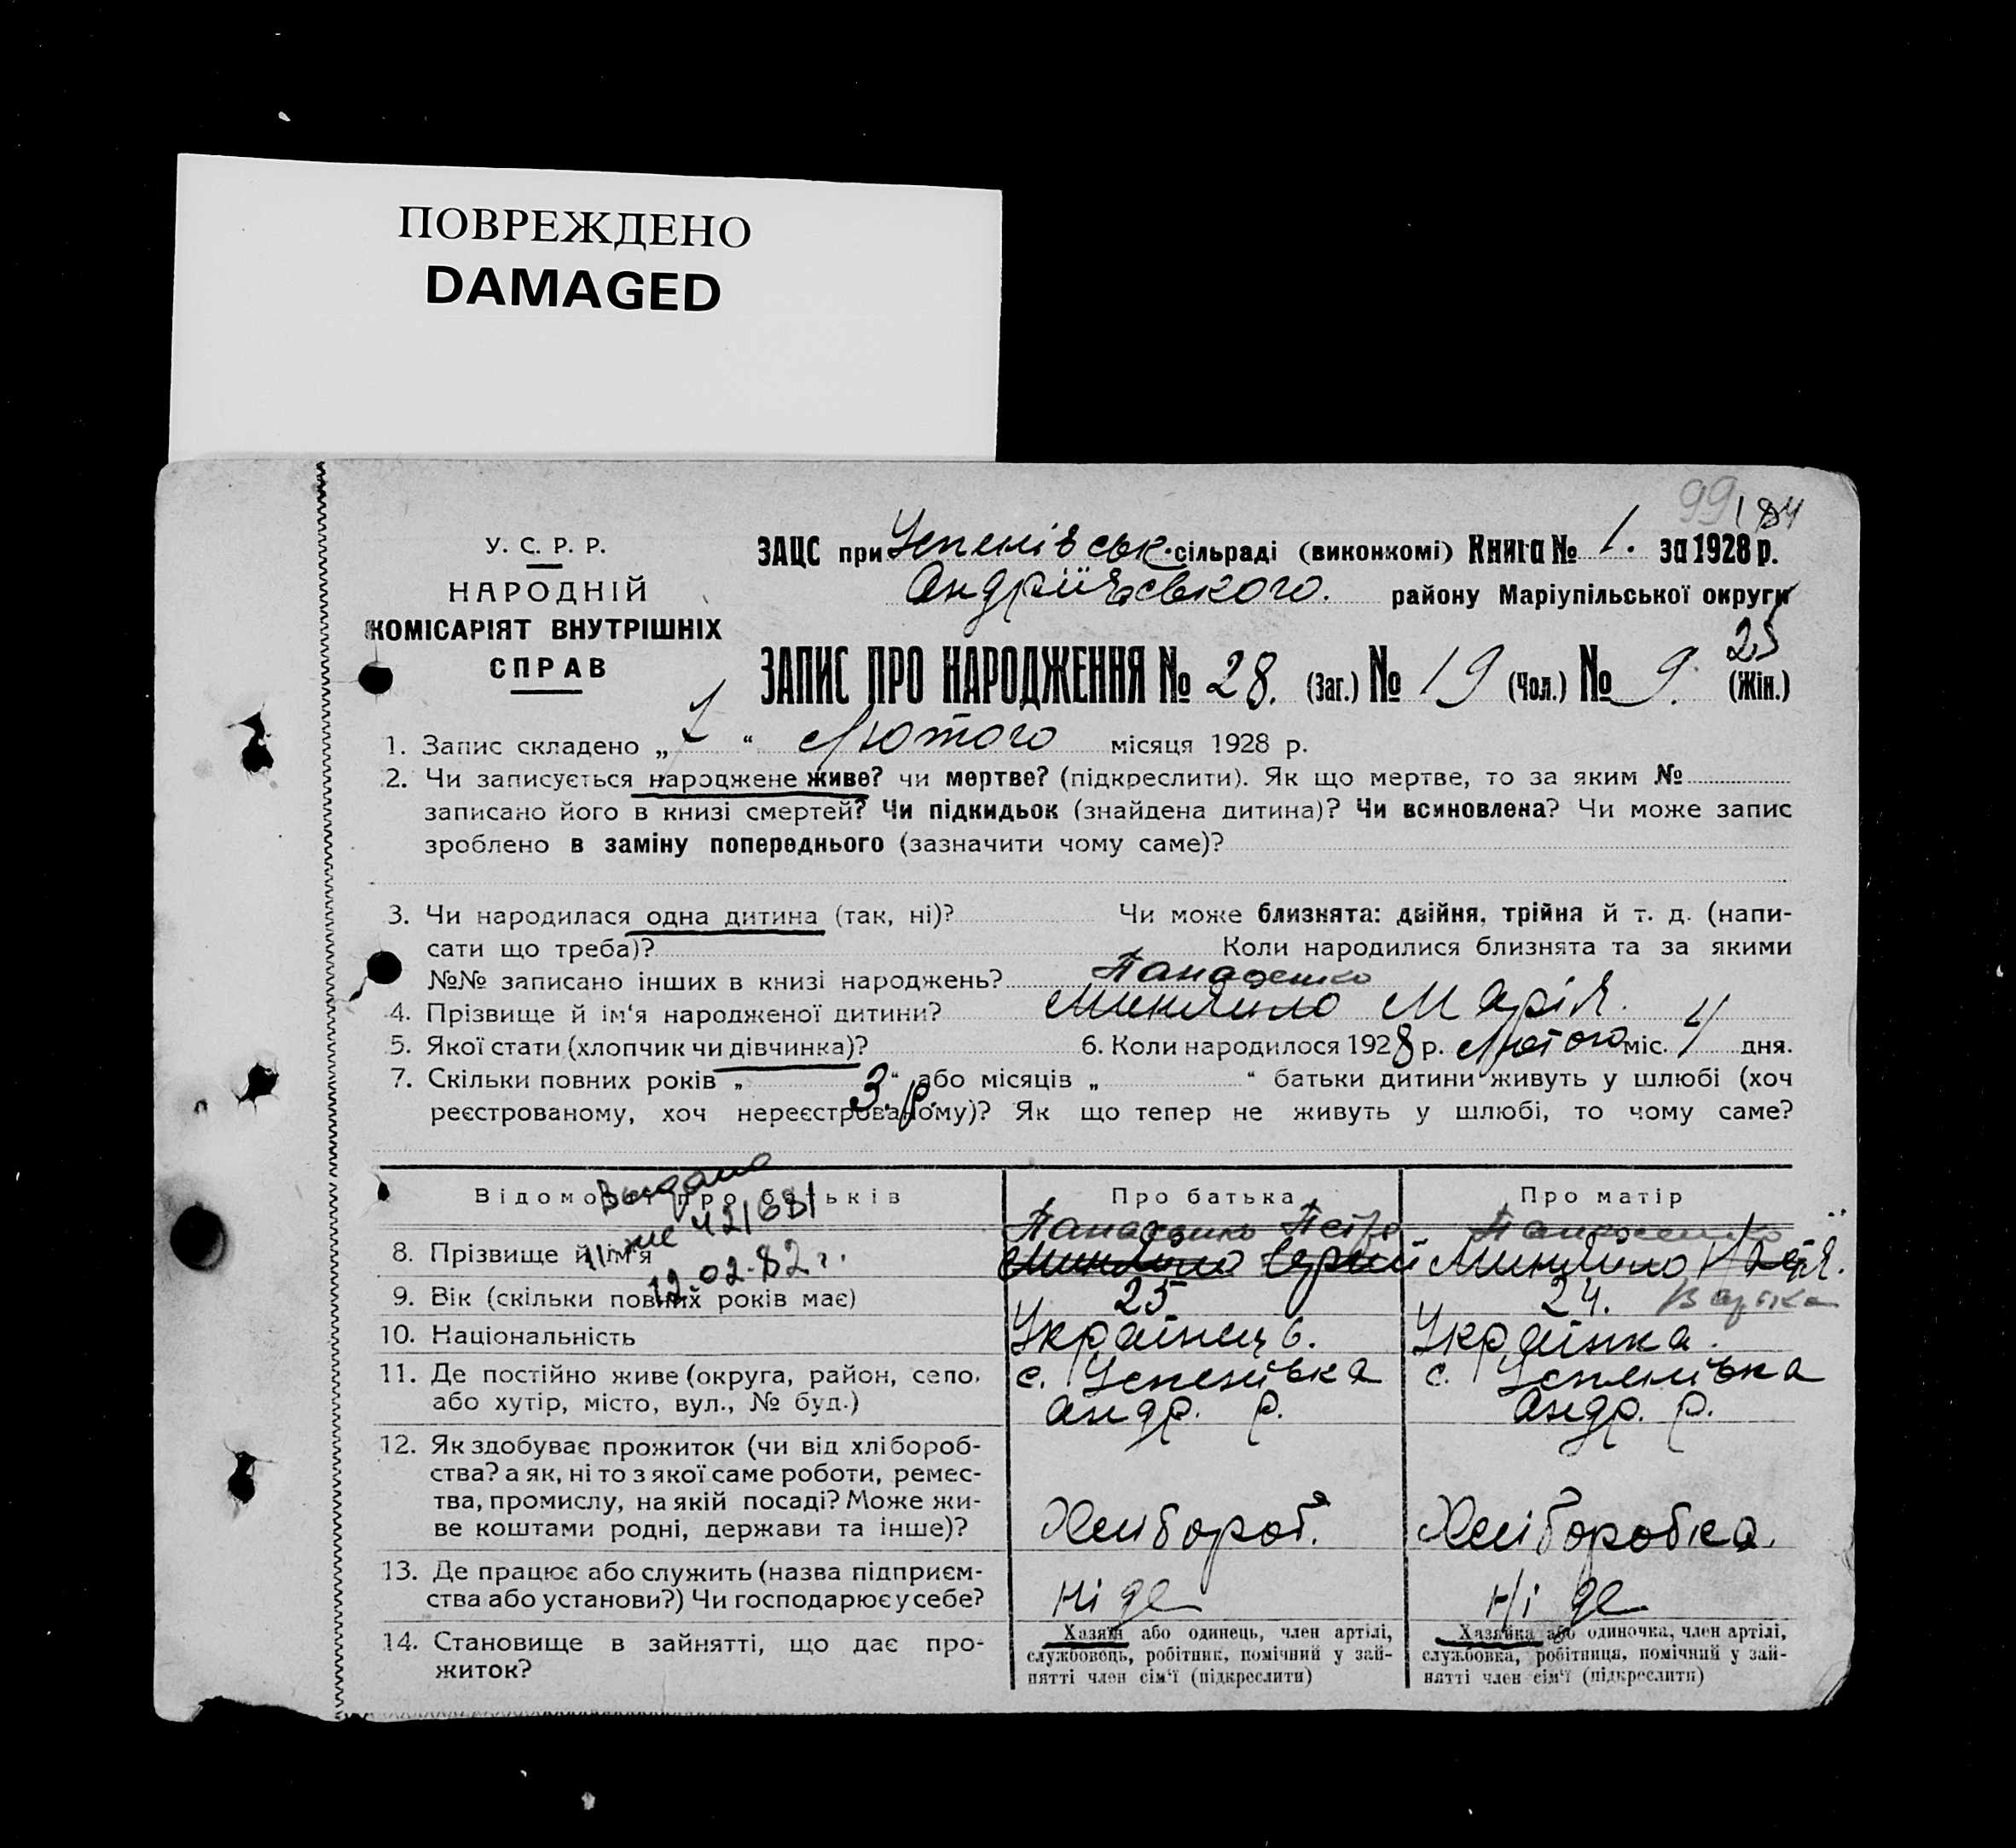 ПОВРЕЖДЕНО
DAMAGED
99 184
У. С. Р. Р.
НАРОДНІЙ
КОМІСАРІЯТ ВНУТРІШНІХ
СПРАВ
ЗАЦС при Успенівськ. сільраді (виконкомі) Книга № 1. за 1928 р.
Андріївського. району Маріупільської округи
25
ЗАПИС ПРО НАРОДЖЕННЯ № 28. (Заг.) № 19 (Чол.) № 9. (Жін.)
1. Запис складено „ 7 “ Лютого місяця 1928 р.
2. Чи записується народжене живе? чи мертве? (підкреслити). Як що мертве, то за яким №
записано його в книзі смертей? Чи підкидьок (знайдена дитина)? Чи всиновлена? Чи може запис
зроблено в заміну попереднього (зазначити чому саме)?
3. Чи народилася одна дитина (так, ні)? Чи може близнята: двійня, трійня й т. д. (напи-
сати що треба)? Коли народилися близнята та за якими
№№ записано інших в книзі народжень?
Панасенко
4. Прізвище й ім‘я народженої дитини? Миняйло Марія.
5. Якої стати (хлопчик чи дівчинка)? 6. Коли народилося 1928 р. Лютого міс. 4 дня.
7. Скільки повних років „ 3 р. “ або місяців „ “ батьки дитини живуть у шлюбі (хоч
реєстрованому, хоч нереєстрованому)? Як що тепер не живуть у шлюбі, то чому саме?
Відомості про батьків Про батька Про матір
Выдано
421681
12.02.82 г.
Панасенко Петро Панасенко
8. Прізвище й ім‘я Миняйло Сергій Миняйло
9. Вік (скільки повних років має) 25 24. Варька
10. Національність Українець. Українка.
11. Де постійно живе (округа, район, село, с. Успенівка с. Успенівка
або хутір, місто, вул., № буд.) Андр. р. Андр. р.
12. Як здобуває прожиток (чи від хлібороб-
ства? а як, ні то з якої саме роботи, ремес-
тва, промислу, на якій посаді? Може жи-
ве коштами родні, держави та інше)? Хлібороб. Хліборобка.
13. Де працює або служить (назва підприєм-
ства або установи?) Чи господарює у себе? Ні де Ні де
14. Становище в зайнятті, що дає про-
житок?
Хазяїн або одинець, член артілі,
службовець, робітник, помічний у зай-
нятті член сім‘ї (підкреслити)
Хазяйка або одиночка, член артілі,
службовка, робітниця, помічний у зай-
нятті член сім‘ї (підкреслити)